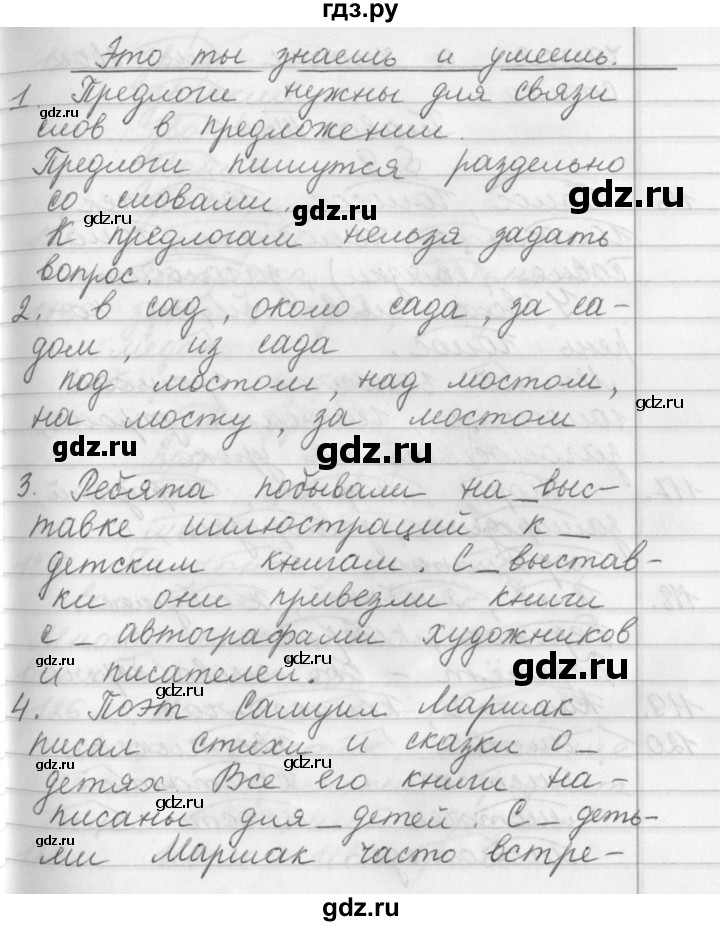 гдз.ру
Это ты знаешь и умеешь.
1. Предлоги нужны для связи
слов в предложении.
Предлоги пишутся раздельно
со словами.
gdz.ru
gdz.ru
gdz.ru
К предлогам нельзя задать
вопрос.
2. в сад, около сада, за са-
дом, из сада
под мостом, над мостом,
gdz.ru
на мосту, за мостом
gdz.ru
gdz.ru
3. Ребята побывали на_выс-
тавке иллюстраций к_
gdz.ru
детским книгам. С_выстав-
ки они привезли книги
gdz.ru
с_автографами художников
gdz.ru
gdz.ru
и писателей.
gdz.ru
4. Поэт Самуил Маршак
писал стихи и сказки о_
gdz.ru
gdz.ru
детях. Все его книги на-
gdz.ru
писаны для_детей. С_деть-
gdz.ru
ми Маршак часто встре-
gdz.ru